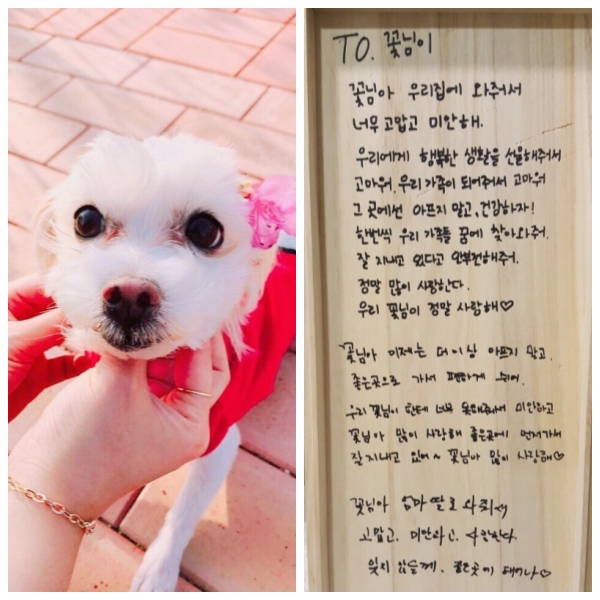 TO. 꽃님이
꽃님아 우리집에 와줘서
너무 고맙고 미안해.
우리에게 행복한 생활을 선물해줘서
고마워, 우리 가족이 되어줘서 고마워
그 곳에선 아프지 말고, 건강하자!
한번씩 우리 가족들 꿈에 찾아와줘.
잘 지내고 있다고 안부전해주고.
정말 많이 사랑한다.
우리 꽃님이 정말 사랑해♡
꽃님아 이제는 더이상 아프지 말고.
좋은곳으로 가서 편하게 쉬어.
우리 꽃님이 한테 너무 못해줘서 미안하고
꽃님아 많이 사랑해 좋은곳에 먼저가서
잘지내고 있어~ 꽃님아 많이 사랑해♡
꽃님아 엄마 딸로 와줘서
고맙고. 미안하고. 사랑한다.
잊지 않을게. 좋은곳에 태어나♡